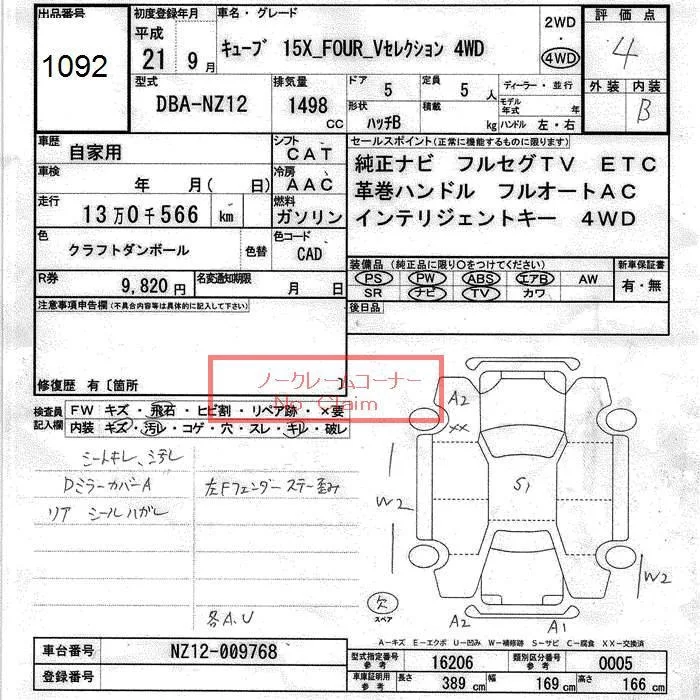 出品番号 初度登録年月 車名・グレード 2WD 評価点
1092 平成 21年 9月 キューブ 15X_FOUR_Vセレクション 4WD ・ 4WD 4
型式 排気量 ドア 5 定員 5人 ディーラー・並行 外装 内装
DBA-NZ12 1498 CC 形状 ハッチB 積載 kg モデル年式 年 B
ハンドル 左・右
車歴 自家用 シフト CAT セールスポイント(正常に機能するものに限ります)
車検 年 月( 日) 冷房 AAC 純正ナビ フルセグTV ETC
走行 13万0千566 km 燃料 ガソリン 革巻ハンドル フルオートAC
インテリジェントキー 4WD
色 クラフトダンボール 色替 色コード CAD
装備品(純正品に限り○をつけてください) 新車保証書
R券 9,820円 名変通知期限 月 日 PS PW ABS エアB AW 有・無
SR ナビ TV カワ
注意事項申告欄(不具合内容等は具体的に記入して下さい) 後日品
修復歴 有〔箇所 〕
ノークレームコーナー
No Claim
検査員記入欄 FW キズ・飛石・ヒビ割・リペア跡・×要
内装 キズ・汚レ・コゲ・穴・スレ・キレ・破レ
シートキレ、汚レ
DミラーカバーA 左Fフェンダーステー歪み
リア シールハガレ
各A.U
A2
XX
S1
W2
W2
欠
スペア
A2 A1
A-キズ E-エクボ U-凹み W-補修跡 S-サビ C-腐食 XX-交換済
車台番号 NZ12-009768 型式指定番号 参考 16206 類別区分番号 参考 0005
登録番号 車庫証明用 参考 長さ 389 cm 幅 169 cm 高さ 166 cm